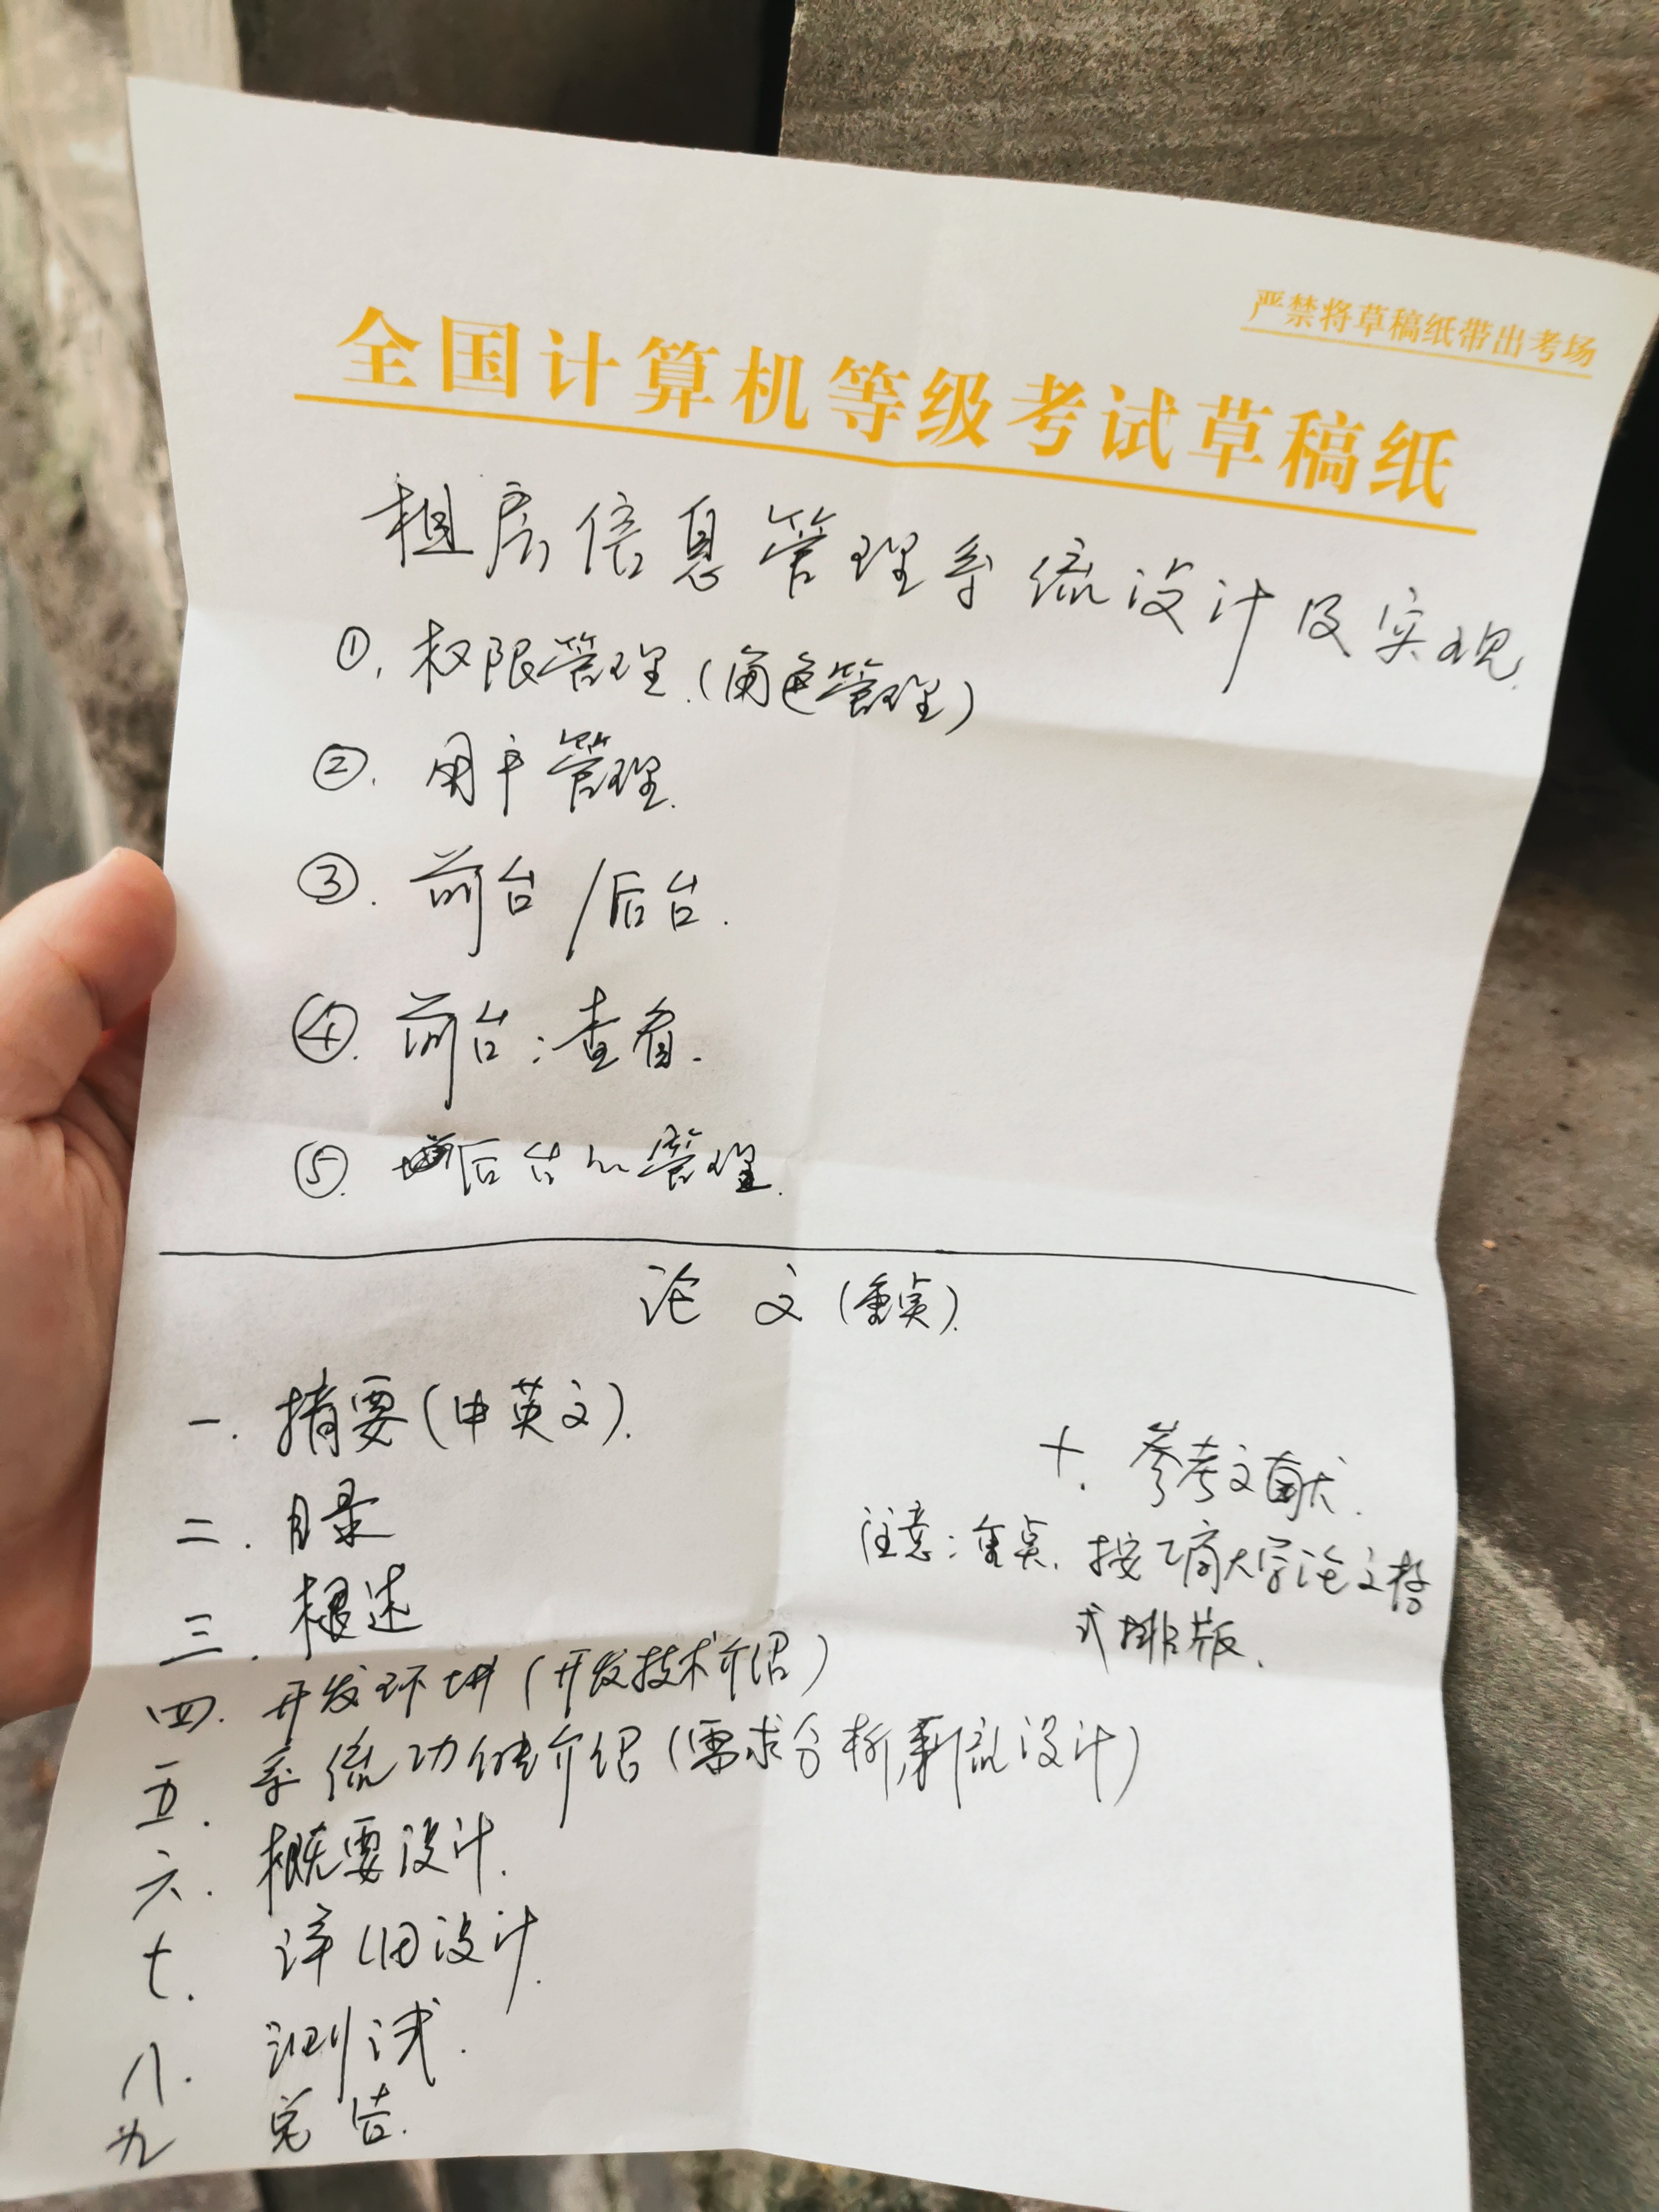 严禁将草稿纸带出考场
全国计算机等级考试草稿纸
租房信息管理系统设计及实现.
①. 权限管理.(角色管理)
②. 用户管理.
③. 前台/后台.
④. 前台:查看.
⑤. 后台 管理.
论文(重点).
一. 摘要(中英文).
二. 目录
三. 概述
四. 开发环境(开发技术介绍)
五. 系统功能介绍(需求分析, 设计)
六. 概要设计.
七. 详细设计.
八. 测试.
九 总结.
十. 参考文献.
注意:重点. 按 工商大学论文格
式排版.